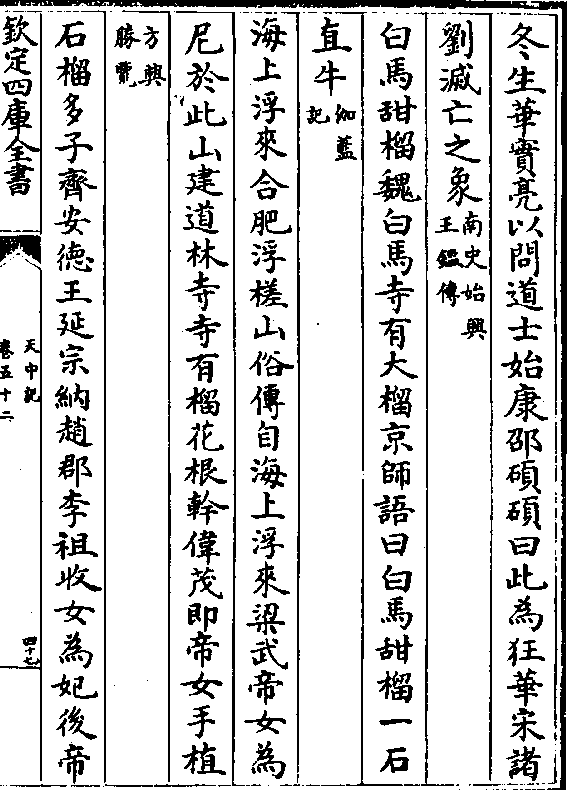 冬生華實亮以問道士始康邵碩碩曰此為狂華宋諸
劉滅亡之象南史始興王鑑傳
白馬甜榴魏白馬寺有大榴京師語曰白馬甜榴一石
直牛伽藍記
海上浮來合肥浮槎山俗傳自海上浮來梁武帝女為
尼於此山建道林寺寺有榴花根幹偉茂即帝女手植
方輿勝覽
石榴多子齊安德王延宗納趙郡李祖收女為妃後帝
欽定四庫全書
天中記
卷五十二
四十七